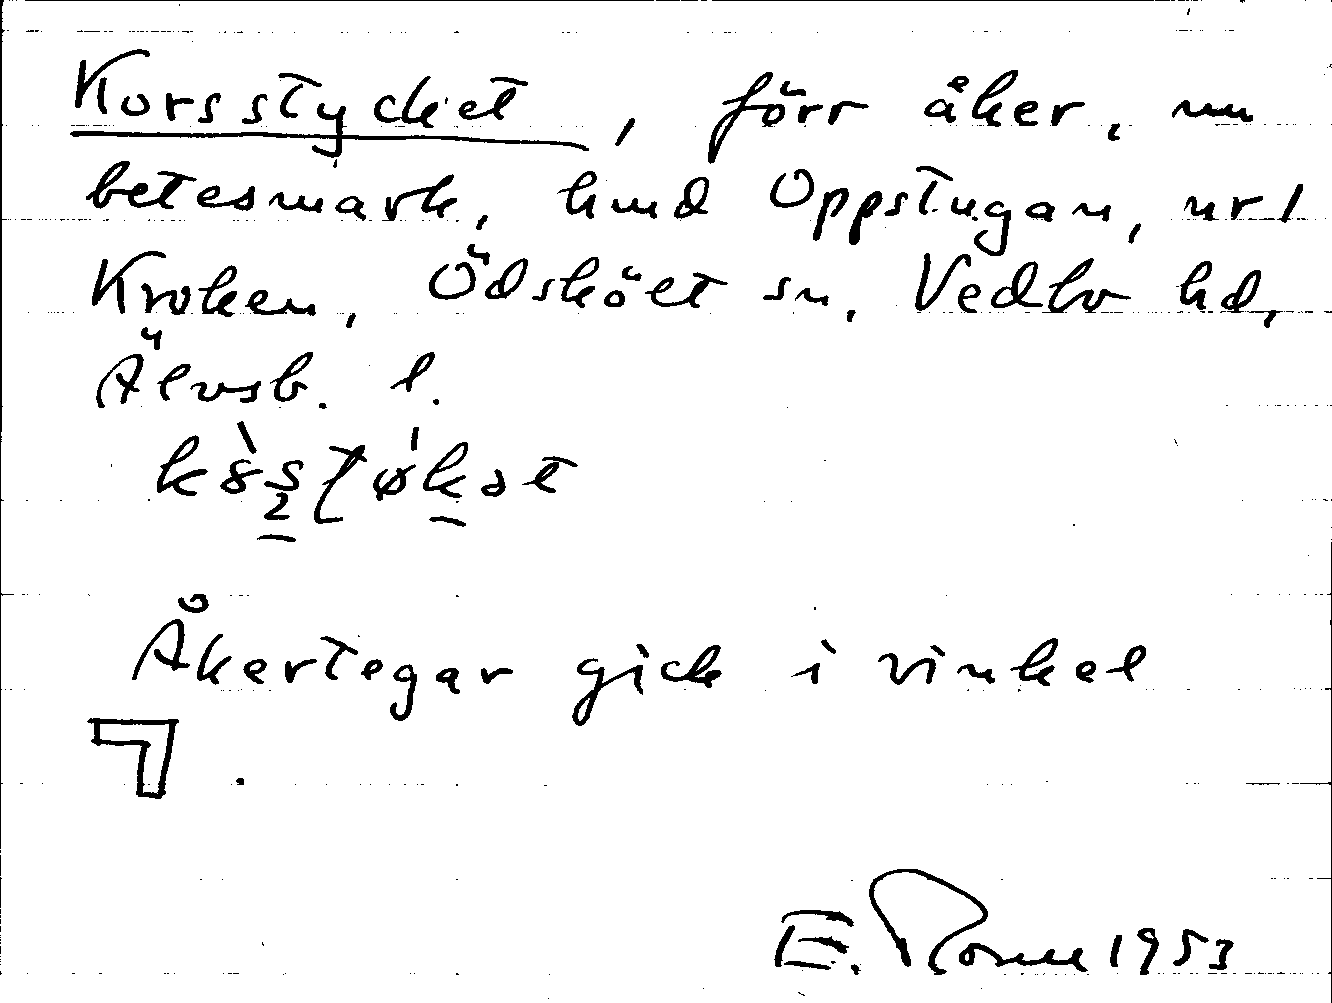 Korsstycket, förr åker, nu
betesmark, hmd Oppstugan, nr 1
Kroken, Ödsköet sn, Vedbo hd,
Älvsb. l.
Åkertegar gick i vinkel
E. 1953